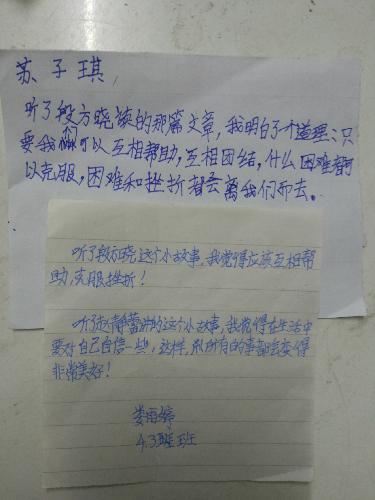 苏子琪,
听了段方晓读的那篇文章,我明白了个道理:只
要我们可以互相帮助,互相团结,什么困难都可
以克服,困难和挫折都会离我们而去。
听了段方晓这个小故事,我觉得应该互相帮
助,克服挫折!
听了赵静蕾讲的这个小故事,我觉得在生活中
要对自己自信一些,这样,所有的事都会变得
非常美好!
娄雨婷
4.3班